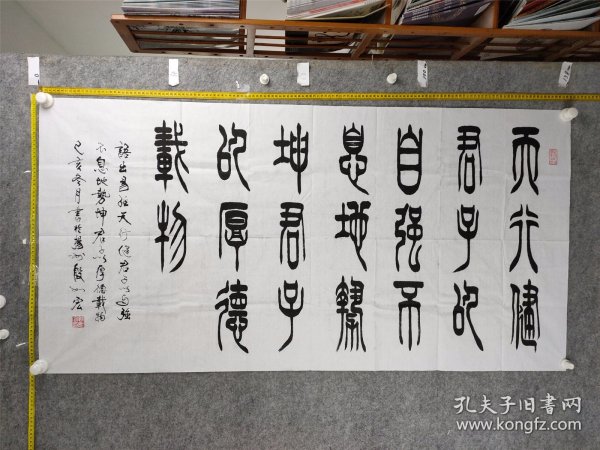 天行健
君子以
自強不
息地勢
坤君子
以厚德
載物
語出易經天行健君子以自強
不息地勢坤君子以厚德載物
己亥冬月書於
孔夫子旧书网
www.kongfz.com